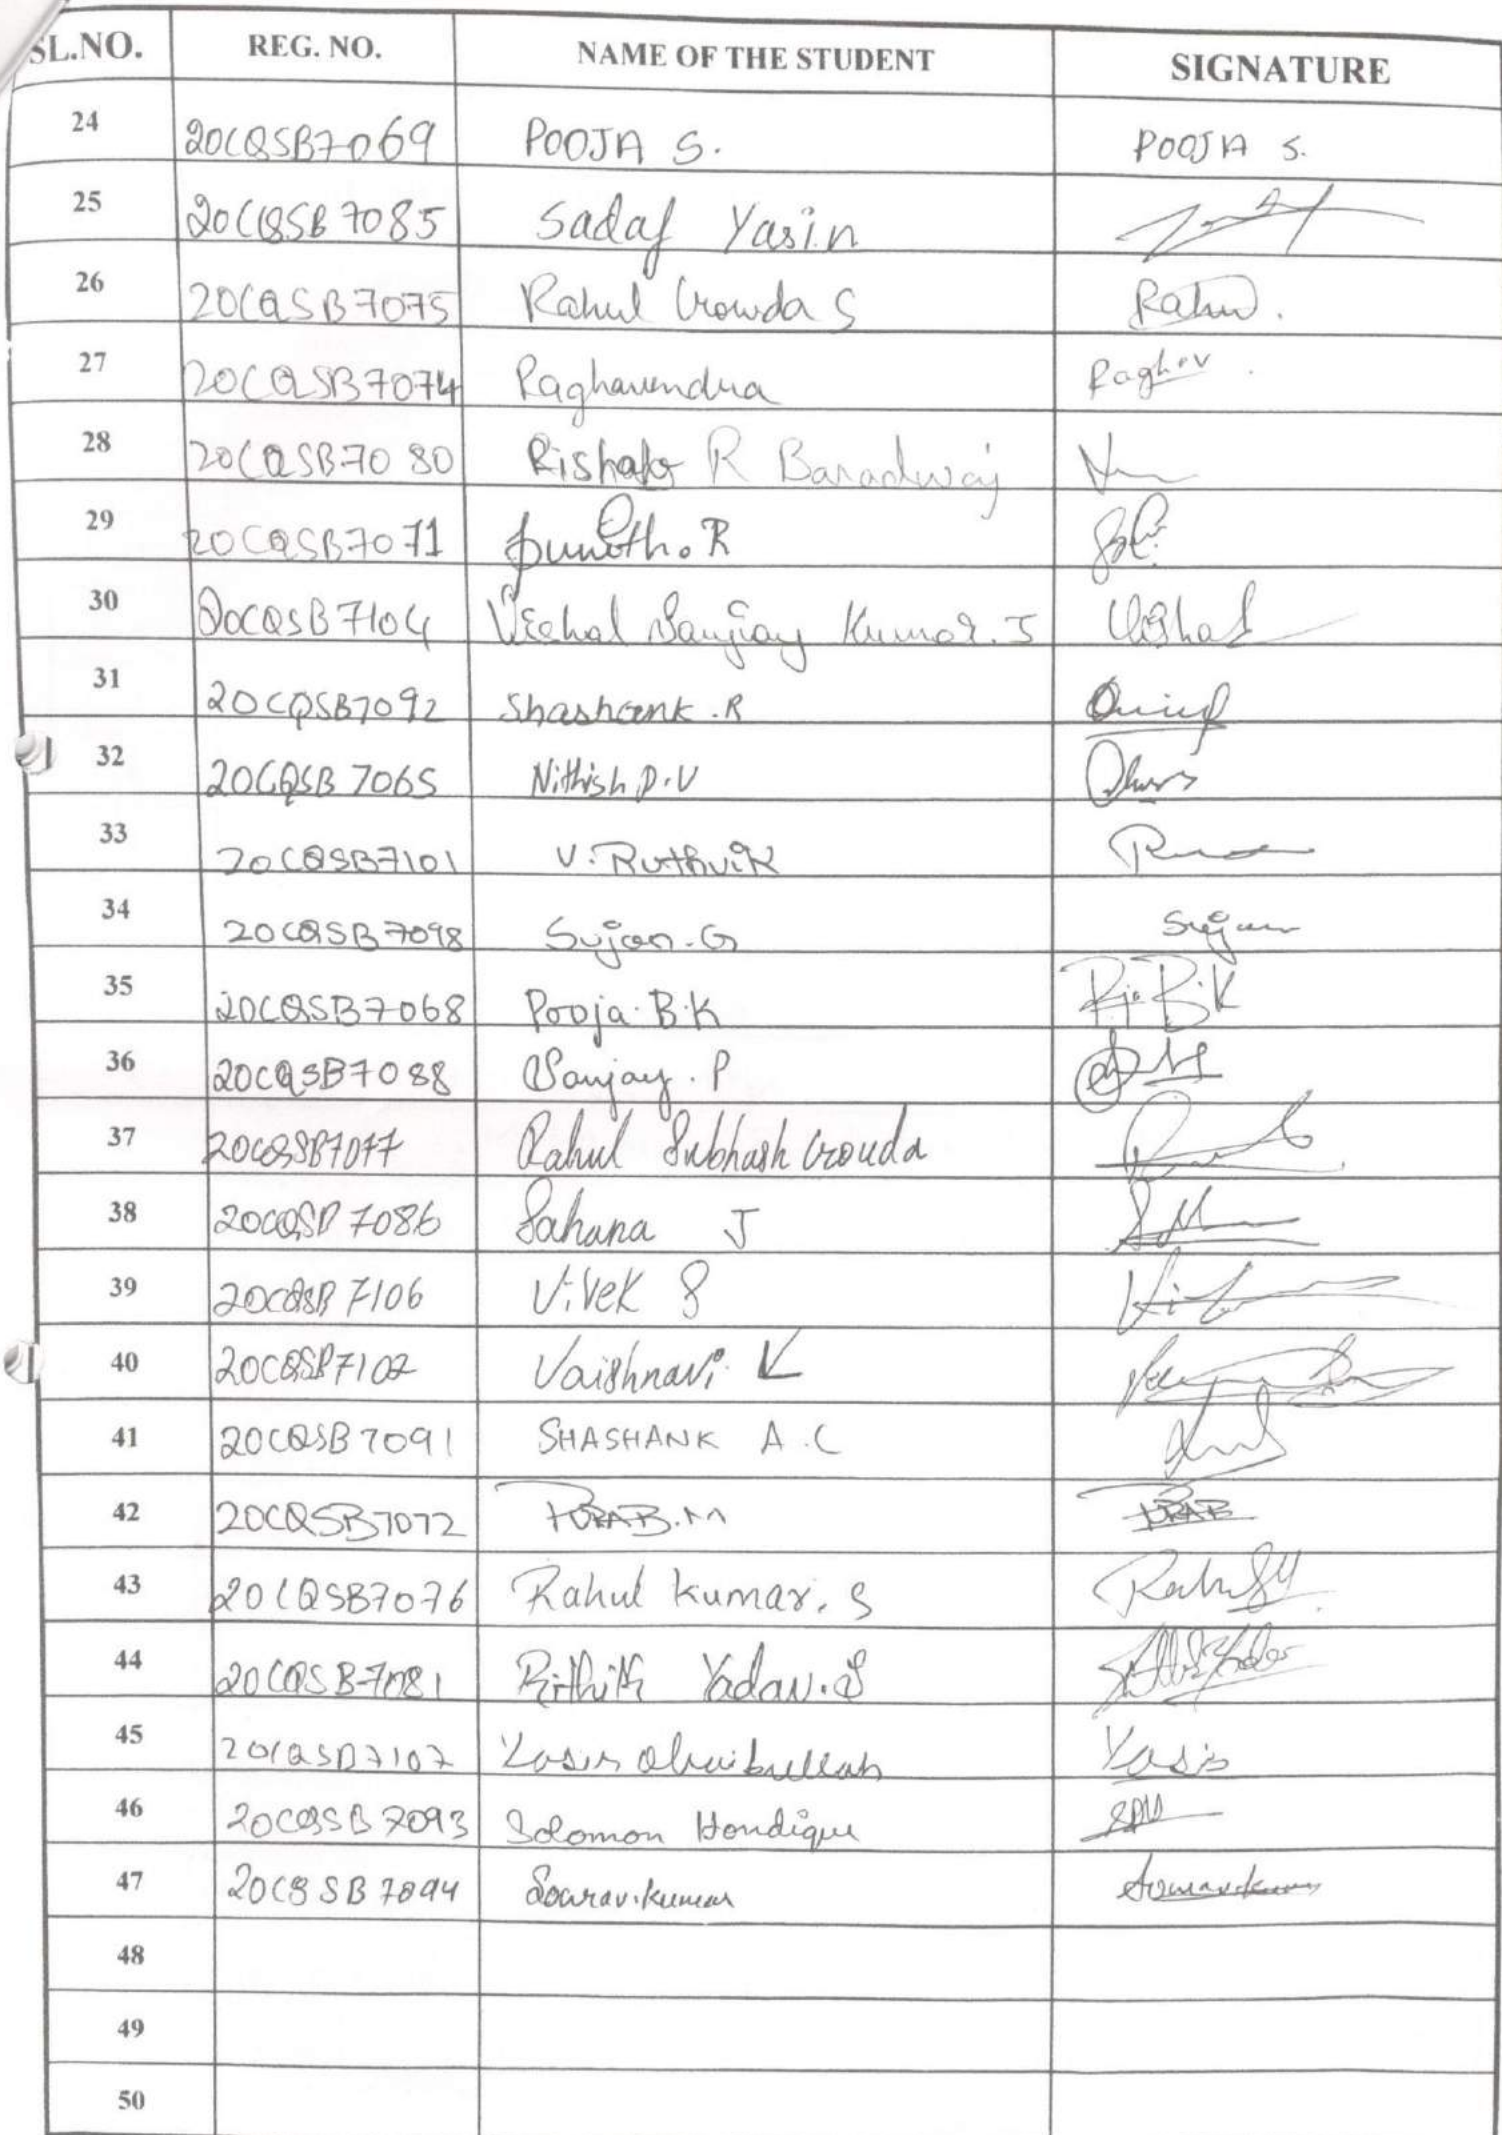 SL.NO. REG. NO. NAME OF THE STUDENT SIGNATURE
24 20CQSB7069 POOJA S. POOJA S.
25 20CQSB7085 Sadaf Yasin
26 20CQSB7075 Rahul Gowda S Rahul.
27 20CQSB7074 Raghavendra Raghav.
28 20CQSB7080 Rishab R Baradwaj
29 20CQSB7071 Punith.R
30 20CQSB7104 Vishal Sanjay Kumar.J Vishal
31 20CQSB7092 Shashank.R
32 20CQSB7065 Nithish D.V
33 20CQSB7101 V.Ruthvik
34 20CQSB7098 Sujan.G Sujan
35 20CQSB7068 Pooja.B.K B.K
36 20CQSB7088 Sanjay.P
37 20CQSB7077 Rahul Subhash Gouda
38 20CQSB7086 Sahana J
39 20CQSB7106 Vivek S
40 20CQSB7102 Vaishnavi K
41 20CQSB7091 SHASHANK A.C
42 20CQSB7072
43 20CQSB7076 Rahul kumar.S
44 20CQSB7081 Rithik Yadav.S
45 20CQSB7107 Yasir Yasir
46 20CQSB7093 Solomon Hondique
47 20CQSB7094 Sourav.kumar Souravkumar
48
49
50